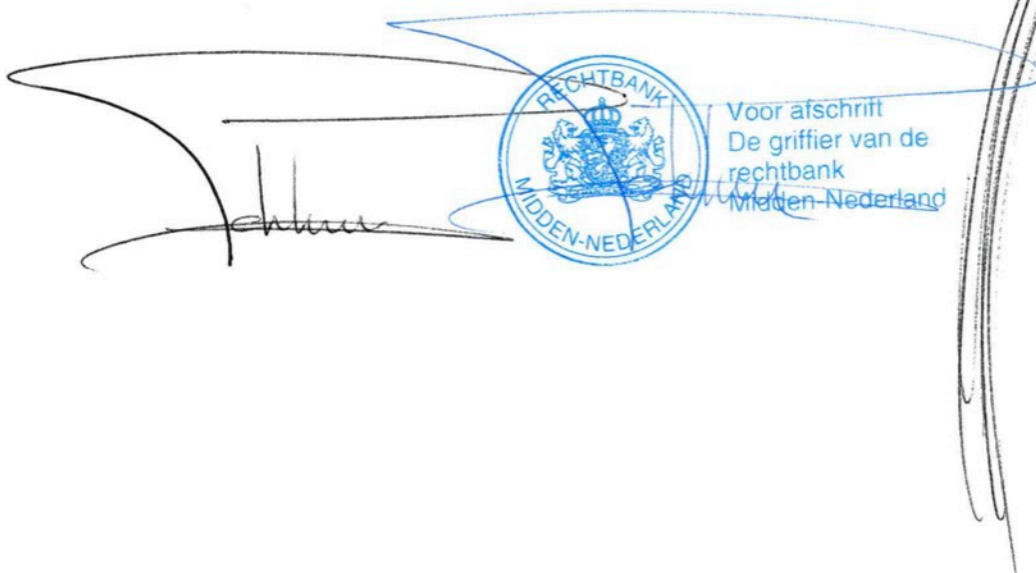 RECHTBANK
MIDDEN-NEDERLAND
Voor afschrift
De griffier van de
rechtbank
Midden-Nederland